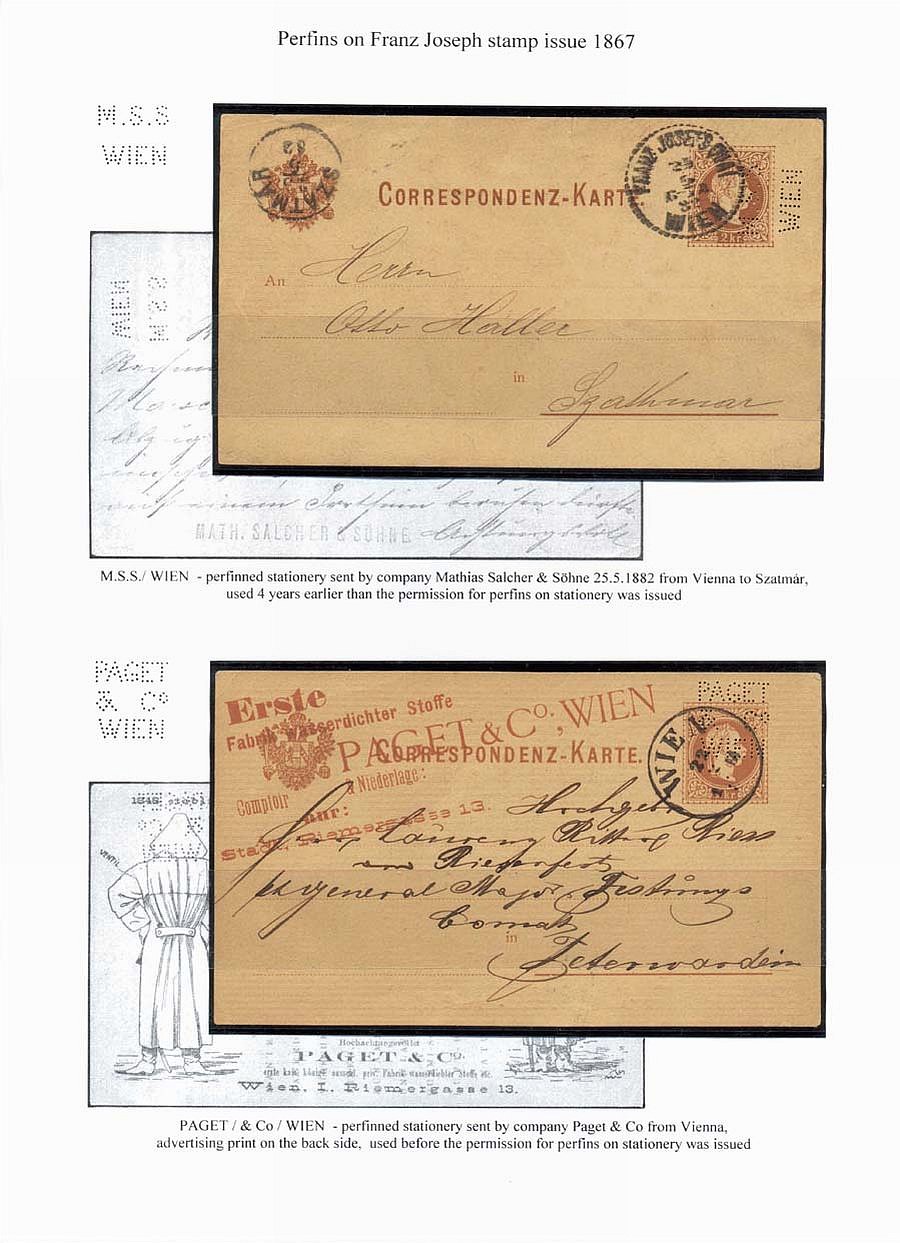 Perfins on Franz Joseph stamp issue 1867
M.S.S
WIEN
SZATMÁR
82
CORRESPONDENZ-KARTE
FRANZ JOSEFS QUAI
WIEN
2 Kr.
WIEN
An Herrn
Otto Haller
in
Szathmar
WIEN
M S S
auf einem
MATH. SALCHER & SÖHNE
M.S.S./ WIEN - perfinned stationery sent by company Mathias Salcher & Söhne 25.5.1882 from Vienna to Szatmár,
used 4 years earlier than the permission for perfins on stationery was issued
PAGET
& Co
WIEN
Erste
Fabrik wasserdichter Stoffe
PAGET & Co., WIEN
CORRESPONDENZ-KARTE.
Comptoir & Niederlage:
nur:
Stadt, Riemergasse 13.
PAGET
& Co
WIEN
WIEN
Hochgeb
general Major Festungs
in
Peterwardein
VENTIL
Hochachtungsvollst
PAGET & Co.
Wien, I. Riemergasse 13.
PAGET / & Co / WIEN - perfinned stationery sent by company Paget & Co from Vienna,
advertising print on the back side, used before the permission for perfins on stationery was issued